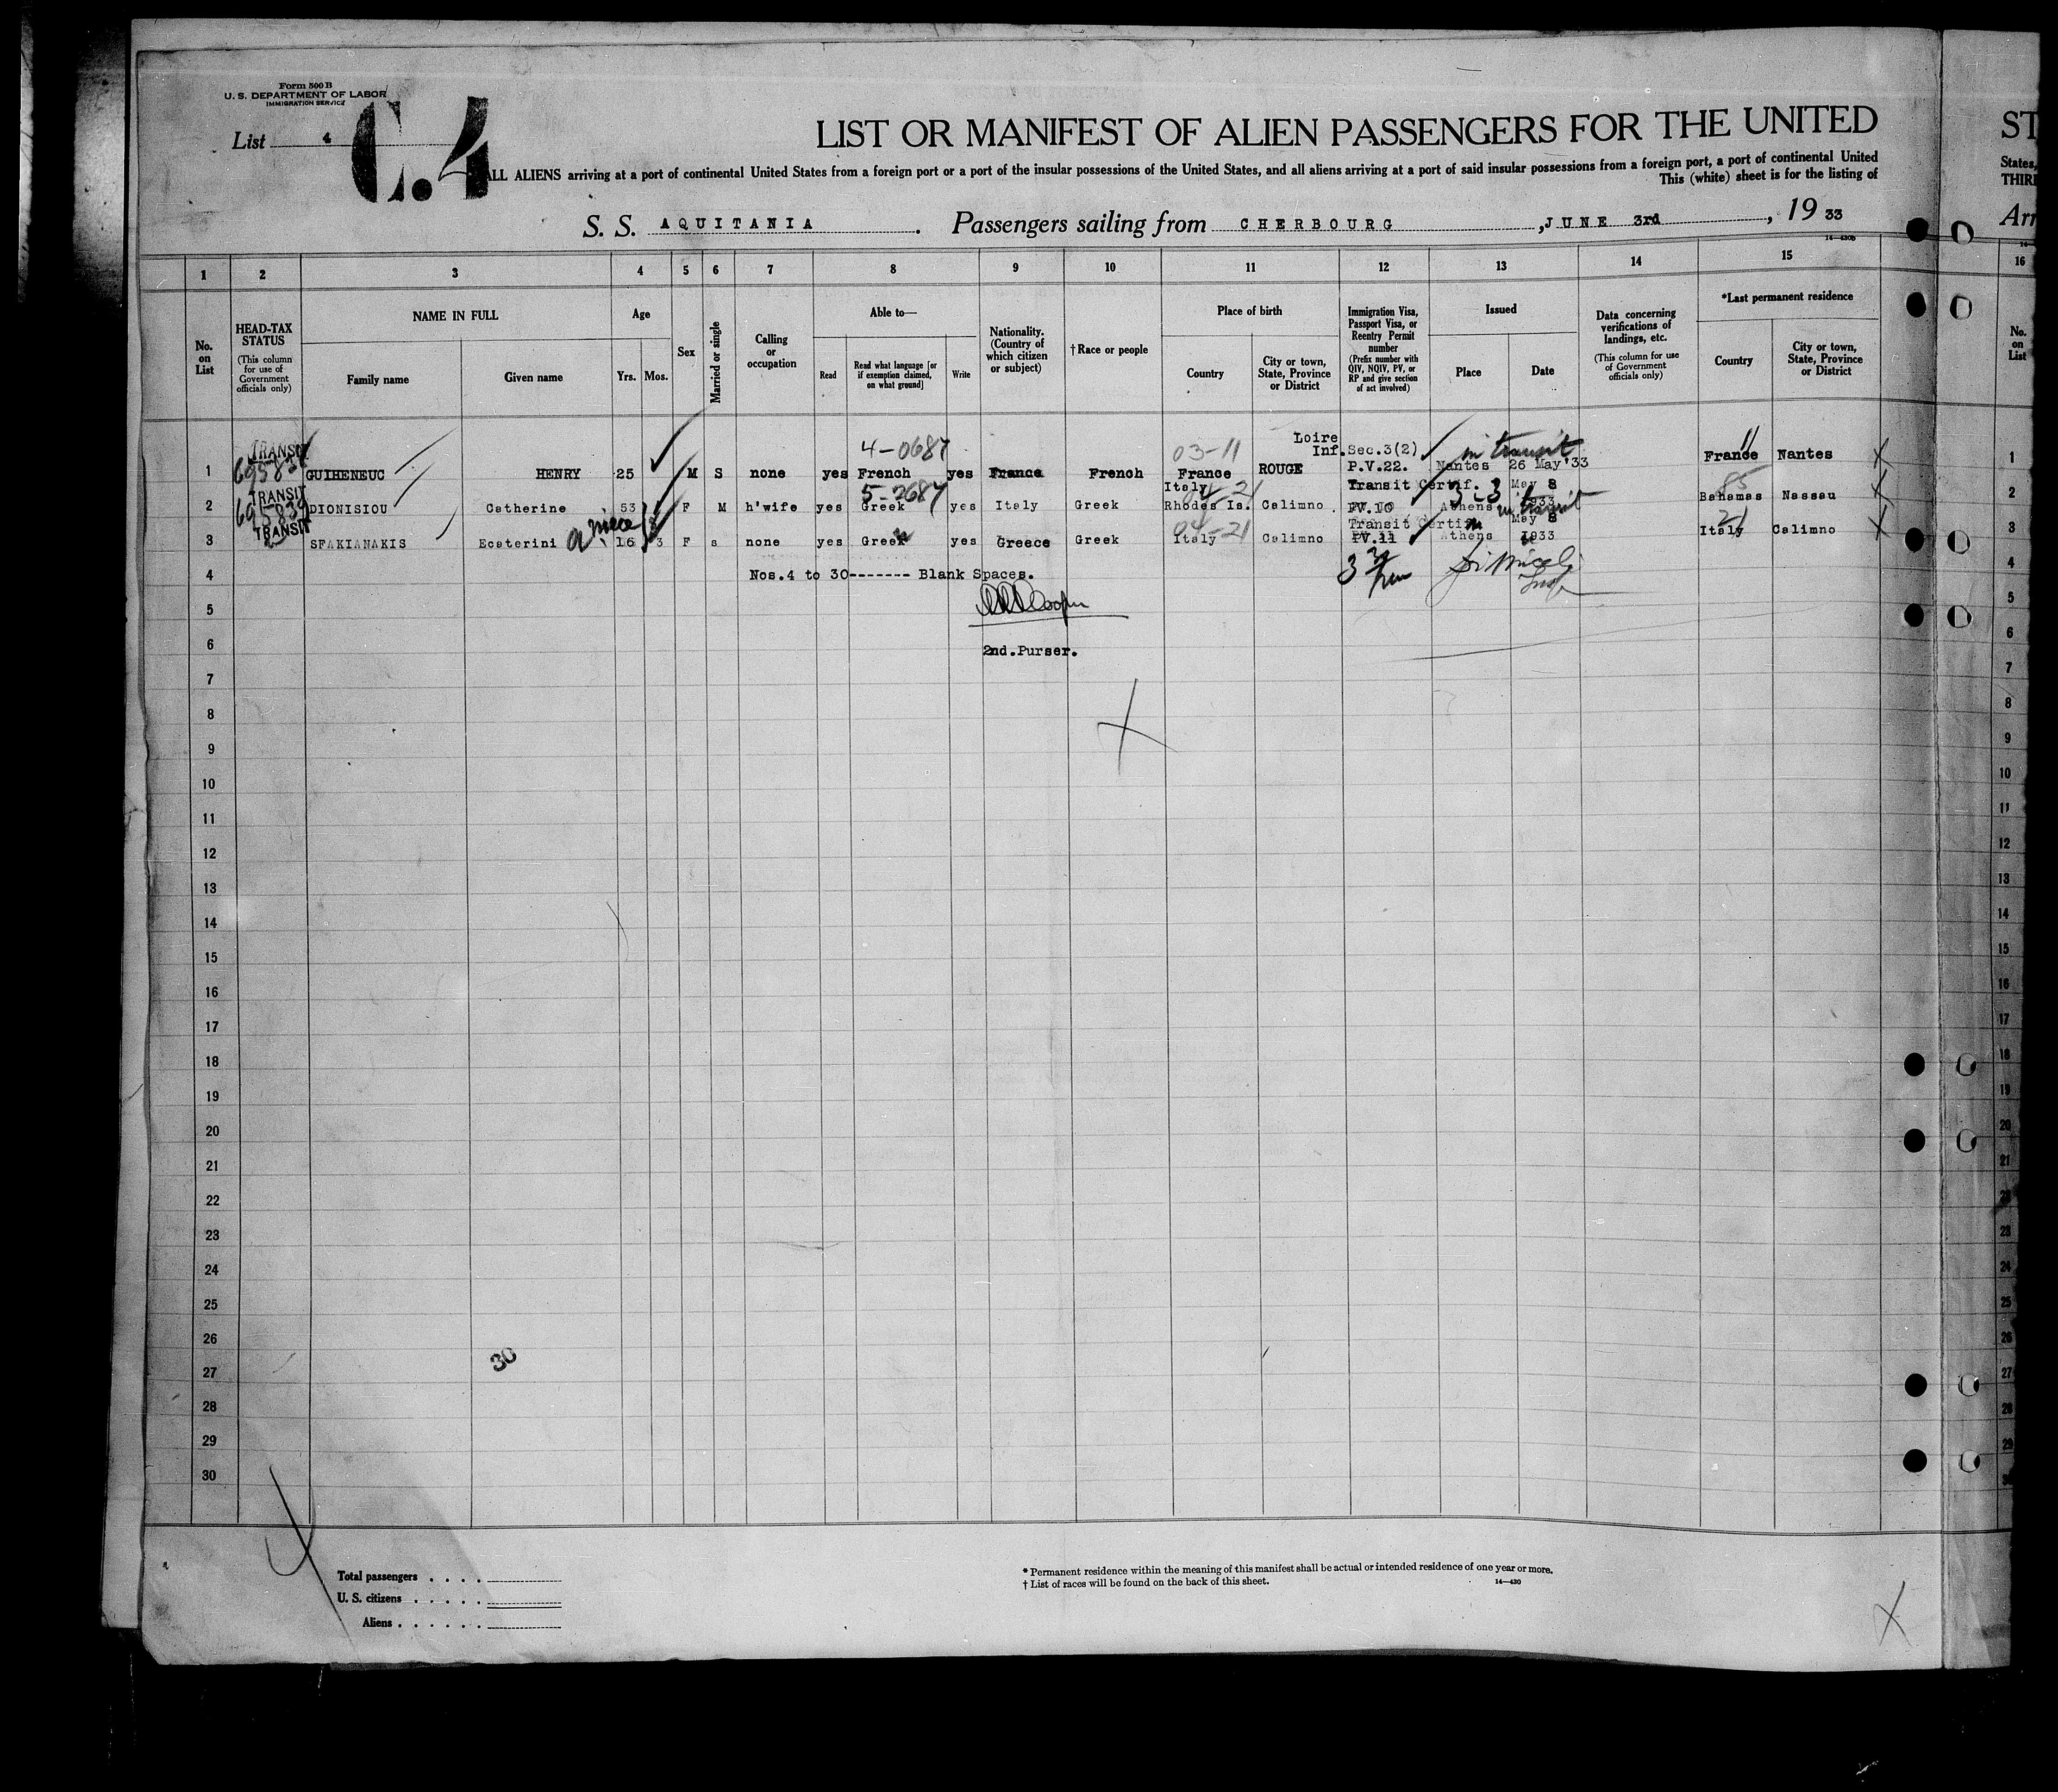 Form 500 B
U. S. DEPARTMENT OF LABOR
IMMIGRATION SERVICE
List 4
C.4
LIST OR MANIFEST OF ALIEN PASSENGERS FOR THE UNITED
ALL ALIENS arriving at a port of continental United States from a foreign port or a port of the insular possessions of the United States, and all aliens arriving at a port of said insular possessions from a foreign port, a port of continental United
This (white) sheet is for the listing of
S. S. AQUITANIA . Passengers sailing from CHERBOURG , JUNE 3rd , 19 33
ST
States,
THIR
Arr
14—430B
1 2 3 4 5 6 7 8 9 10 11 12 13 14 15 16
No. on List
HEAD-TAX STATUS
(This column for use of Government officials only)
NAME IN FULL
Family name
Given name
Age
Yrs.
Mos.
Sex
Married or single
Calling or occupation
Able to—
Read
Read what language [or if exemption claimed, on what ground]
Write
Nationality. (Country of which citizen or subject)
†Race or people
Place of birth
Country
City or town, State, Province or District
Immigration Visa, Passport Visa, or Reentry Permit number
(Prefix number with QIV, NQIV, PV, or RP and give section of act involved)
Issued
Place
Date
Data concerning verifications of landings, etc.
(This column for use of Government officials only)
*Last permanent residence
Country
City or town, State, Province or District
No. on List
TRANSIT 4-0687 03-11 Loire Inf. Sec.3(2) in transit 11
1 GUIHENEUC HENRY 25 M S none yes French yes France French France ROUGE P.V.22. Nantes 26 May'33 France Nantes 1
TRANSIT 5-2687 Italy Transit Certif. 3-3 May 8 85
2 695839 DIONISIOU Catherine 53 F M h'wife yes Greek yes Italy Greek Rhodes Is. Calimno PV.10 Athens 1933 in transit Bahamas Nassau 2
TRANSIT a niece 04-21 Transit Certif. May 8 21
3 SFAKIANAKIS Ecaterini 16 3 F s none yes Greek yes Greece Greek Italy Calimno PV.11 Athens 1933 Italy Calimno 3
4 Nos.4 to 30------- Blank Spaces. 4
5 5
6 2nd.Purser. 6
7 7
8 8
9 9
10 10
11 11
12 12
13 13
14 14
15 15
16 16
17 17
18 18
19 19
20 20
21 21
22 22
23 23
24 24
25 25
26 26
30
27 27
28 28
29 29
30
Total passengers . . . .
U. S. citizens . . . . .
Aliens . . . . . .
* Permanent residence within the meaning of this manifest shall be actual or intended residence of one year or more.
† List of races will be found on the back of this sheet. 14—430